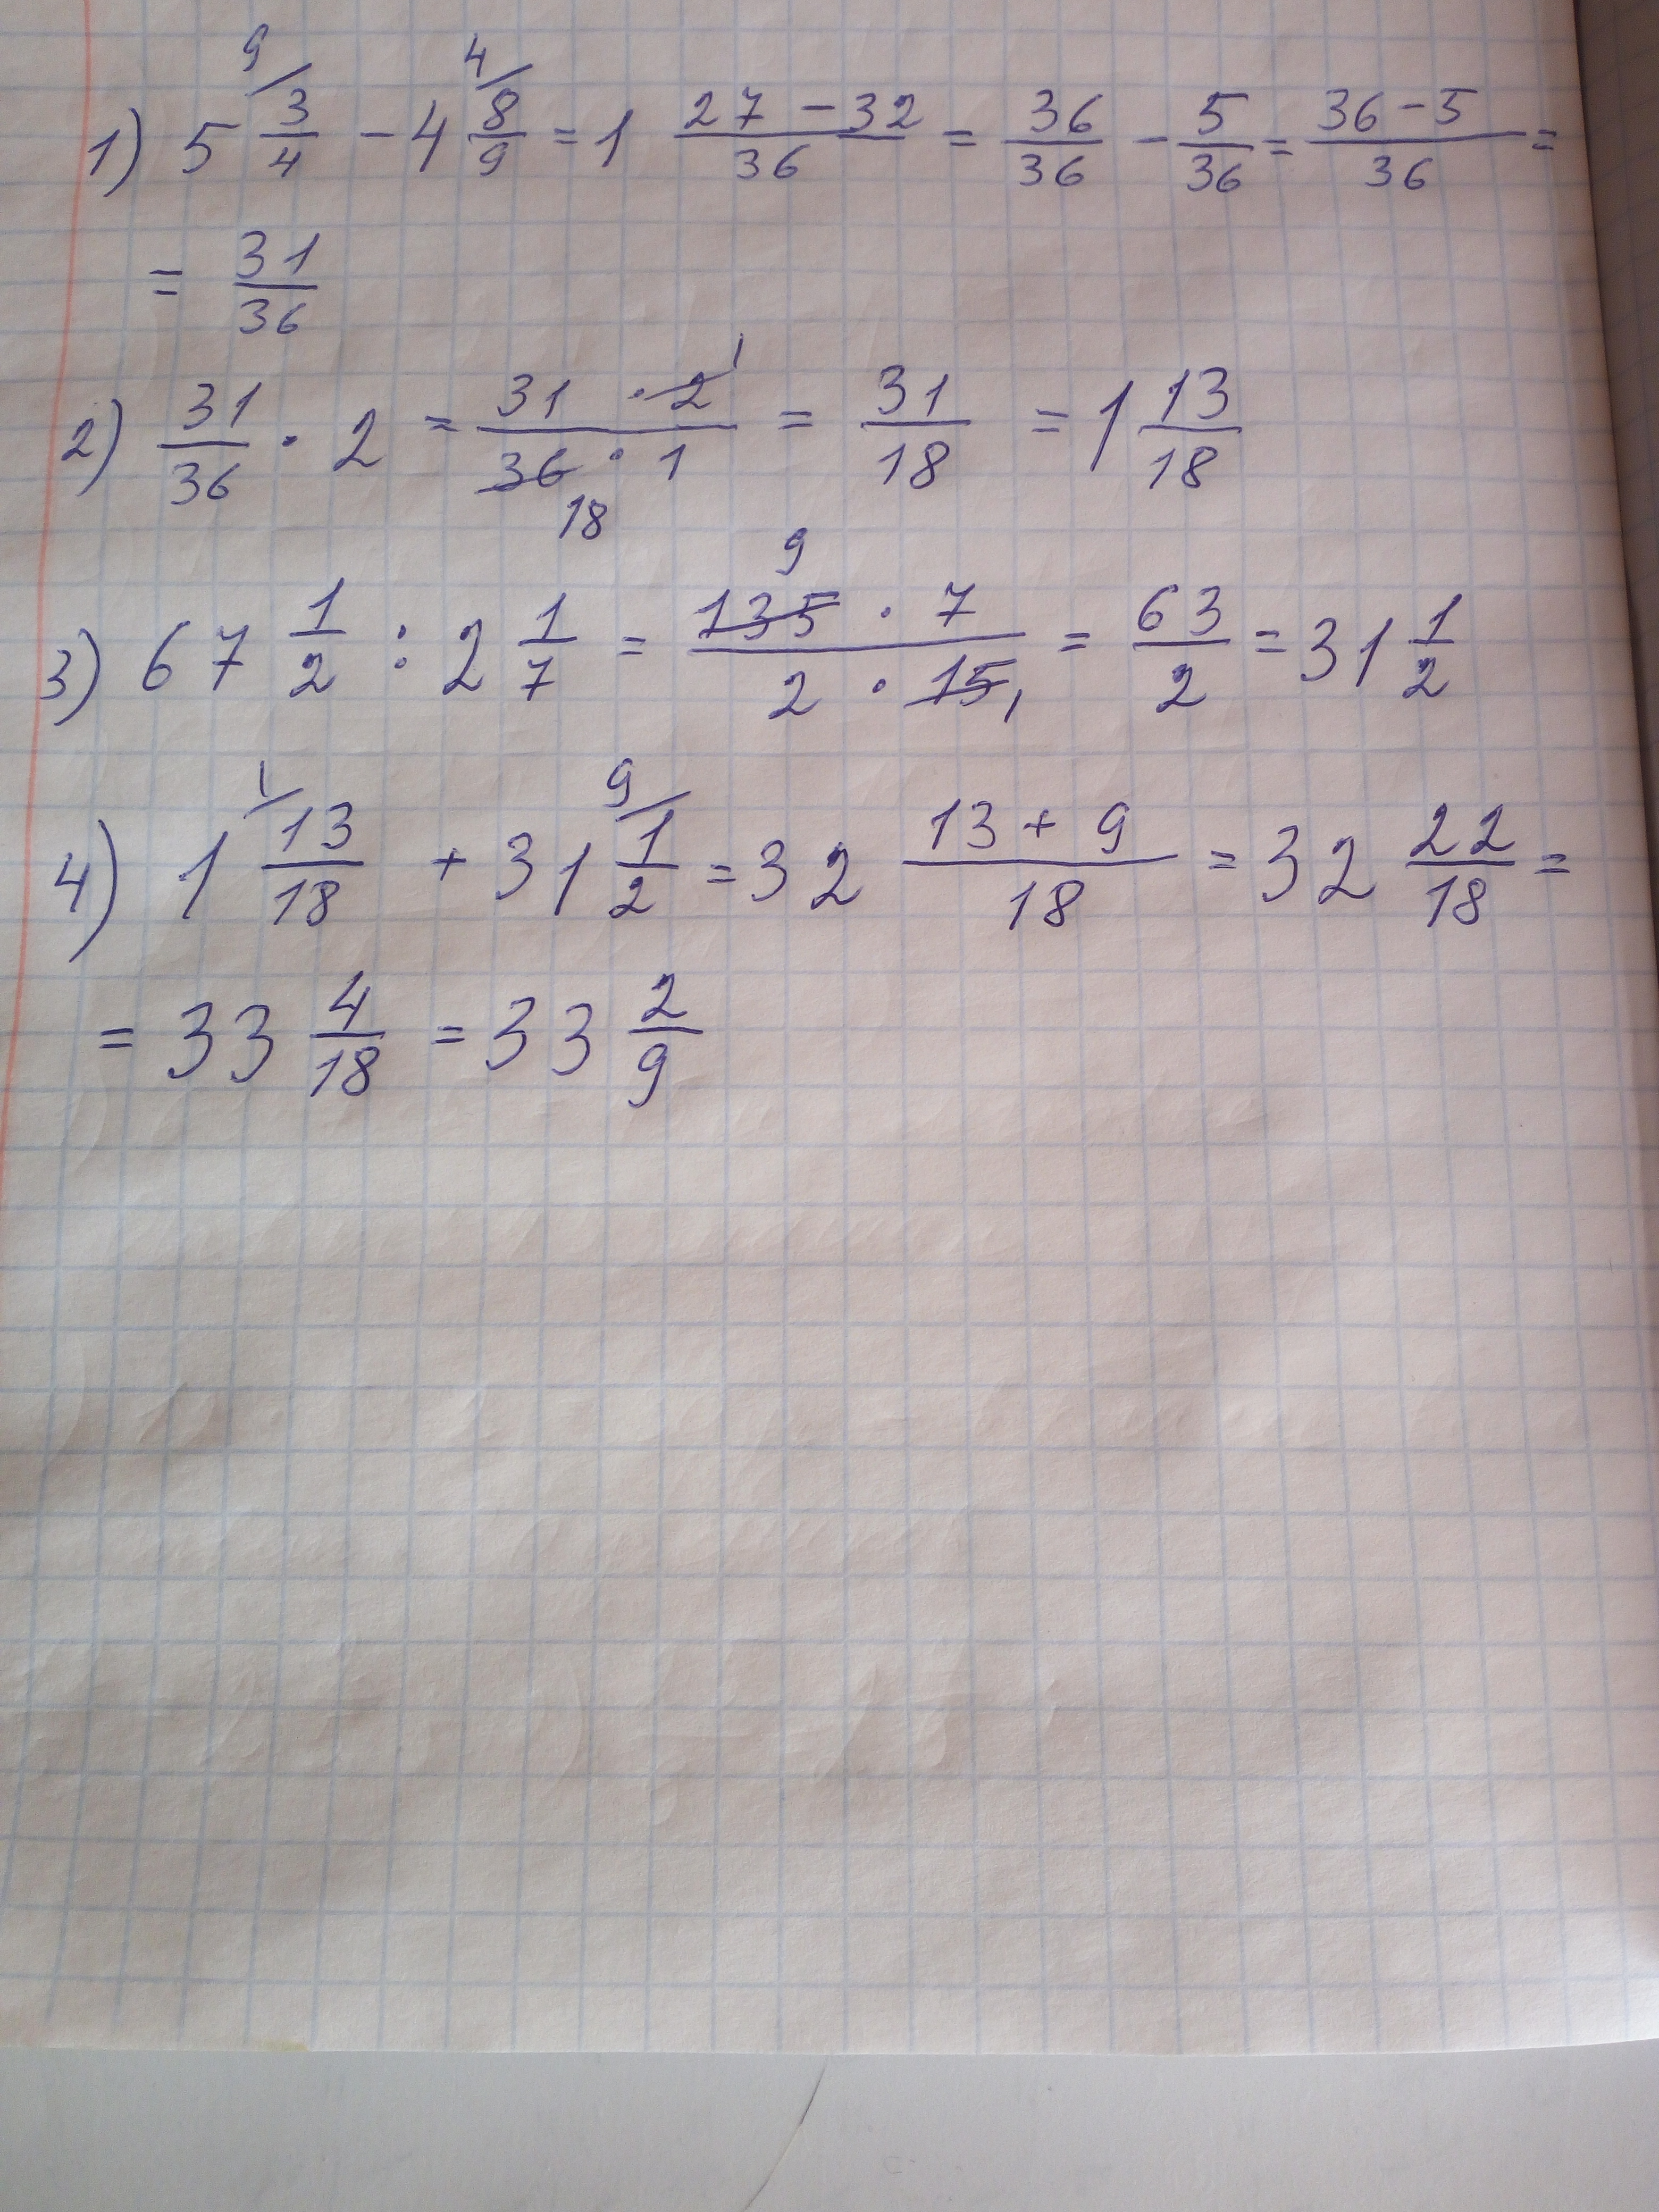 1) 5 3/4 - 4 8/9 = 1 (27 - 32)/36 = 36/36 - 5/36 = (36 - 5)/36 =
= 31/36
2) 31/36 · 2 = (31 · 2)/(36 · 1) = 31/18 = 1 13/18
3) 67 1/2 : 2 1/7 = (135 · 7)/(2 · 15) = 63/2 = 31 1/2
4) 1 13/18 + 31 1/2 = 32 (13 + 9)/18 = 32 22/18 =
= 33 4/18 = 33 2/9